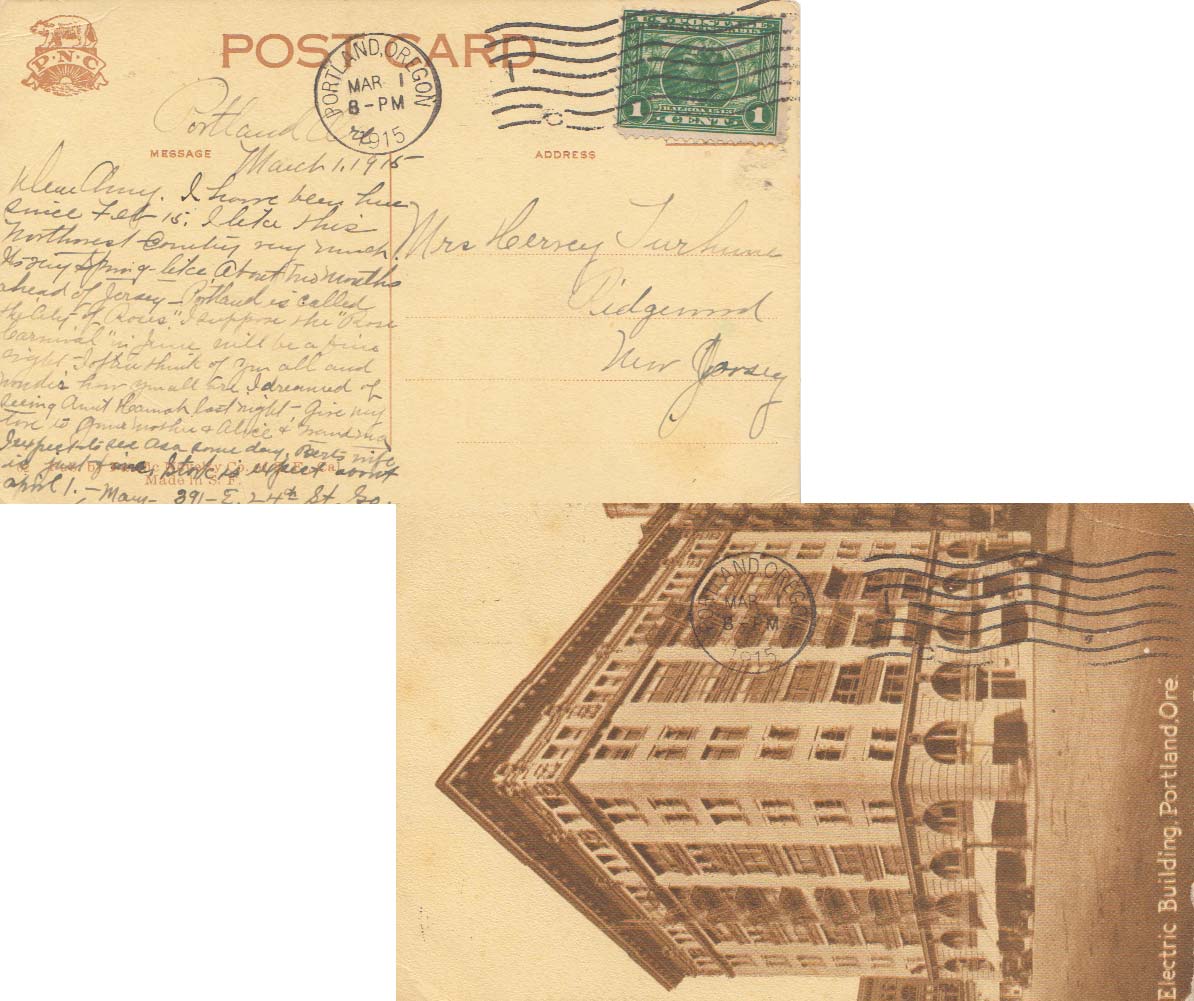 P·N·C
POST CARD
PORTLAND, OREGON
MAR 1
8-PM
1915
U.S. POSTAGE
BALBOA 1513
1 CENT 1
MESSAGE
ADDRESS
Portland Ore
March 1, 1915
Dear Amy. I have been here
since Feb 15. I like this
Northwest Country very much.
Its very Spring-like. About two months
ahead of Jersey - Portland is called
the City of Roses." I suppose the "Rose
Carnival" in June will be a fine
sight - I often think of you all and
wonder how you all are. I dreamed of
seeing Aunt Hannah last night - Give my
love to your mother & Alice & Grandma
I expect to see Asa some day. Berts wife
is just fine, Stork is expect about
April 1. - Mary - 391 - E. 24th St. So.
Made in S. F.
Mrs Hervey Turhune
Ridgewood
New Jersey
PORTLAND, OREGON
MAR 1
8-PM
1915
Electric Building, Portland, Ore.